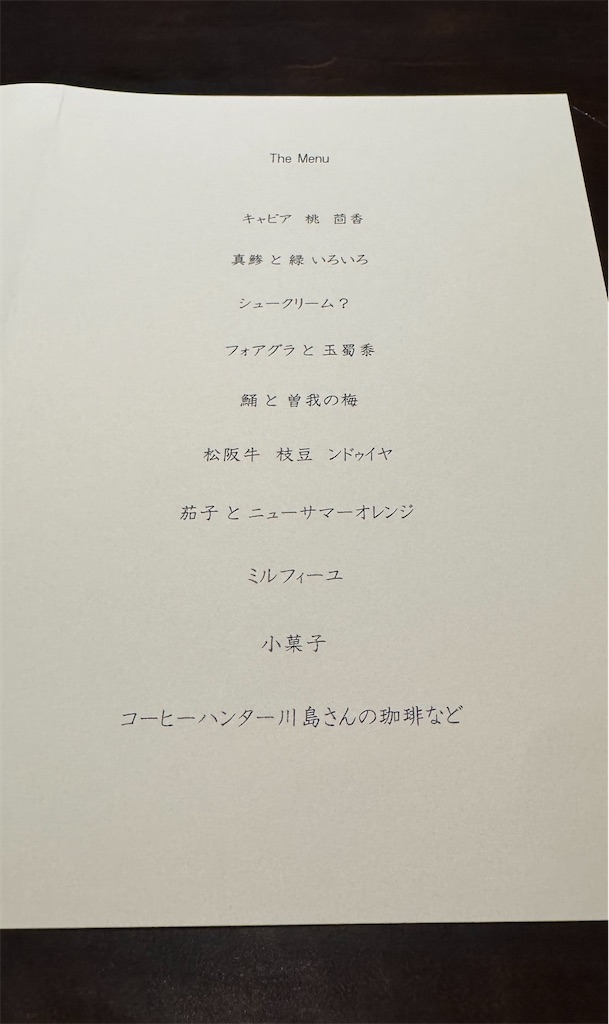 The Menu
キャビア 桃 茴香
真鯵 と 緑 いろいろ
シュークリーム？
フォアグラ と 玉蜀黍
鯒 と 曽我の梅
松阪牛 枝豆 ンドゥイヤ
茄子 と ニューサマーオレンジ
ミルフィーユ
小菓子
コーヒーハンター川島さんの珈琲など